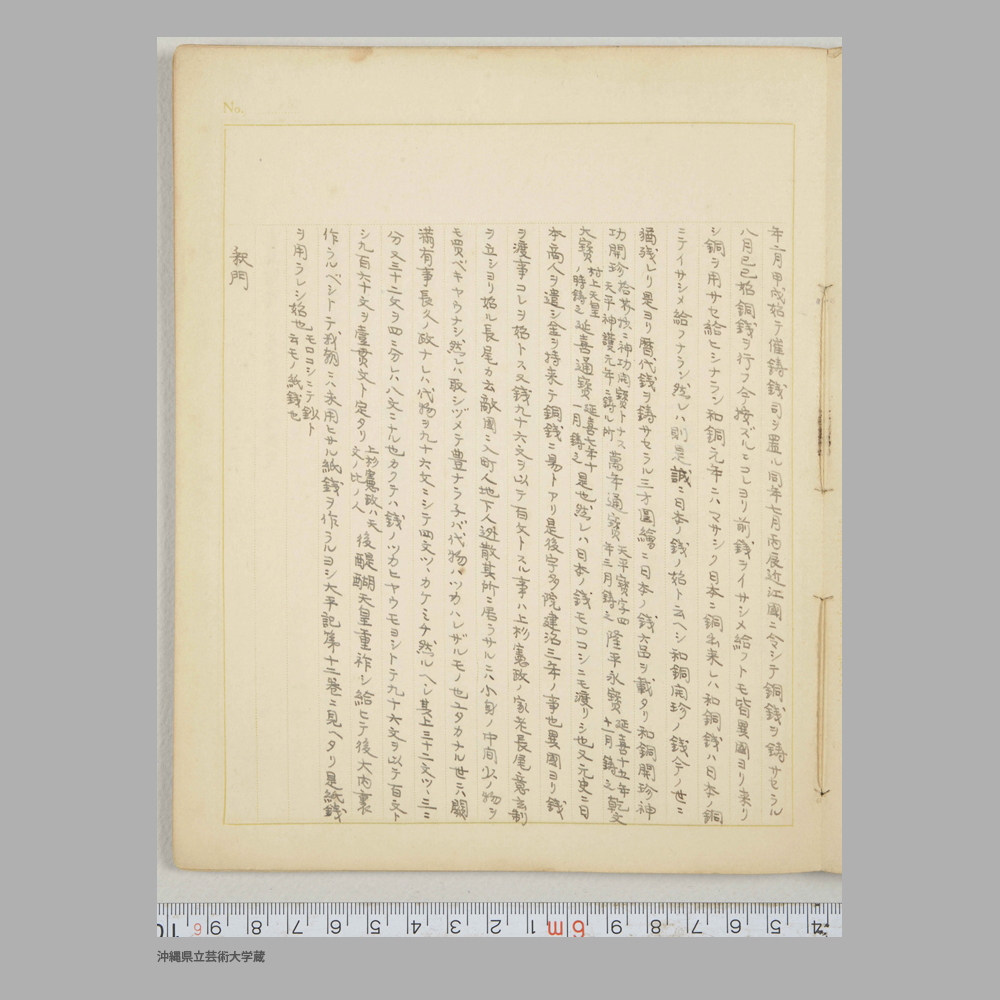 No.
年二月甲戌始テ催鋳銭司ヲ置ル同年七月丙辰近江國ニ令シテ銅銭ヲ鋳サセラル
八月己巳始銅銭ヲ行フ今按ズルニコレヨリ前銭ヲイサシメ給フトモ皆異國ヨリ来リ
シ銅ヲ用サセ給ヒシナラン和銅元年ニハマサシク日本ニ銅出来レハ和銅銭ハ日本ノ銅
ニテイサシメ給フナラン然レハ則是誠ニ日本ノ銭ノ始ト云ヘシ和銅開珍ノ銭今ノ世ニ
猶残レリ是ヨリ暦代銭ヲ鋳サセラル三才圖繪ニ日本ノ銭六品ヲ載タリ和銅開珍神
功開珍 拾芥抄ニ神功開寶トナス天平神護元年ニ鋳ル所 萬年通寶 天平寶字四年三月鋳之 隆平永寶 延喜十五年十一月鋳之 乾文
大寶 村上天皇ノ時鋳之 延喜通寶 延喜七年十一月鋳之 是也然レハ日本ノ銭モロコシニモ渡リシ也又元史ニ日
本商人ヲ遣シ金ヲ持来テ銅銭ニ易トアリ是後宇多院建治三年ノ事也異國ヨリ銭
ヲ渡事コレヲ始トス又銭九十六文ヲ以テ百文トスル事ハ上杉憲政ノ家老長尾意玄制
ヲ立シヨリ始ル長尾カ云敵國ニ入町人地下人逃散其所ニ居ラサルニハ小身ノ中間少ノ物ヲ
モ買ベキヤウナシ然レハ取シヅメテ豊ナラ子バ代物ハツカハレザルモノ也ユタカナル世ニハ闕
満有事長久ノ政ナレハ代物ヲ九十六文ニシテ四文ツヽカケミチ然ルヘシ其上三十二文ツヽ三ニ
分又三十二文ヲ四ニ分レハ八文ニナル也カクテハ銭ノツカヒヤウモヨシトテ九十六文ヲ以テ百文ト
シ九百六十文ヲ壹貫文ト定タリ 上杉憲政ハ天文ノ比ノ人 後醍醐天皇重祚シ給ヒテ後大内裏
作ラルベシトテ我朝ニハ未用ヒサル紙銭ヲ作ラルヨシ太平記第十二巻ニ見ヘタリ是紙銭
ヲ用ラレシ始也 モロコシニテ鈔ト云モノ紙銭也
釈門
10 6 9 8 7 6 5 4 3 2 1 6m 9 8 7 6 5 4
沖縄県立芸術大学蔵